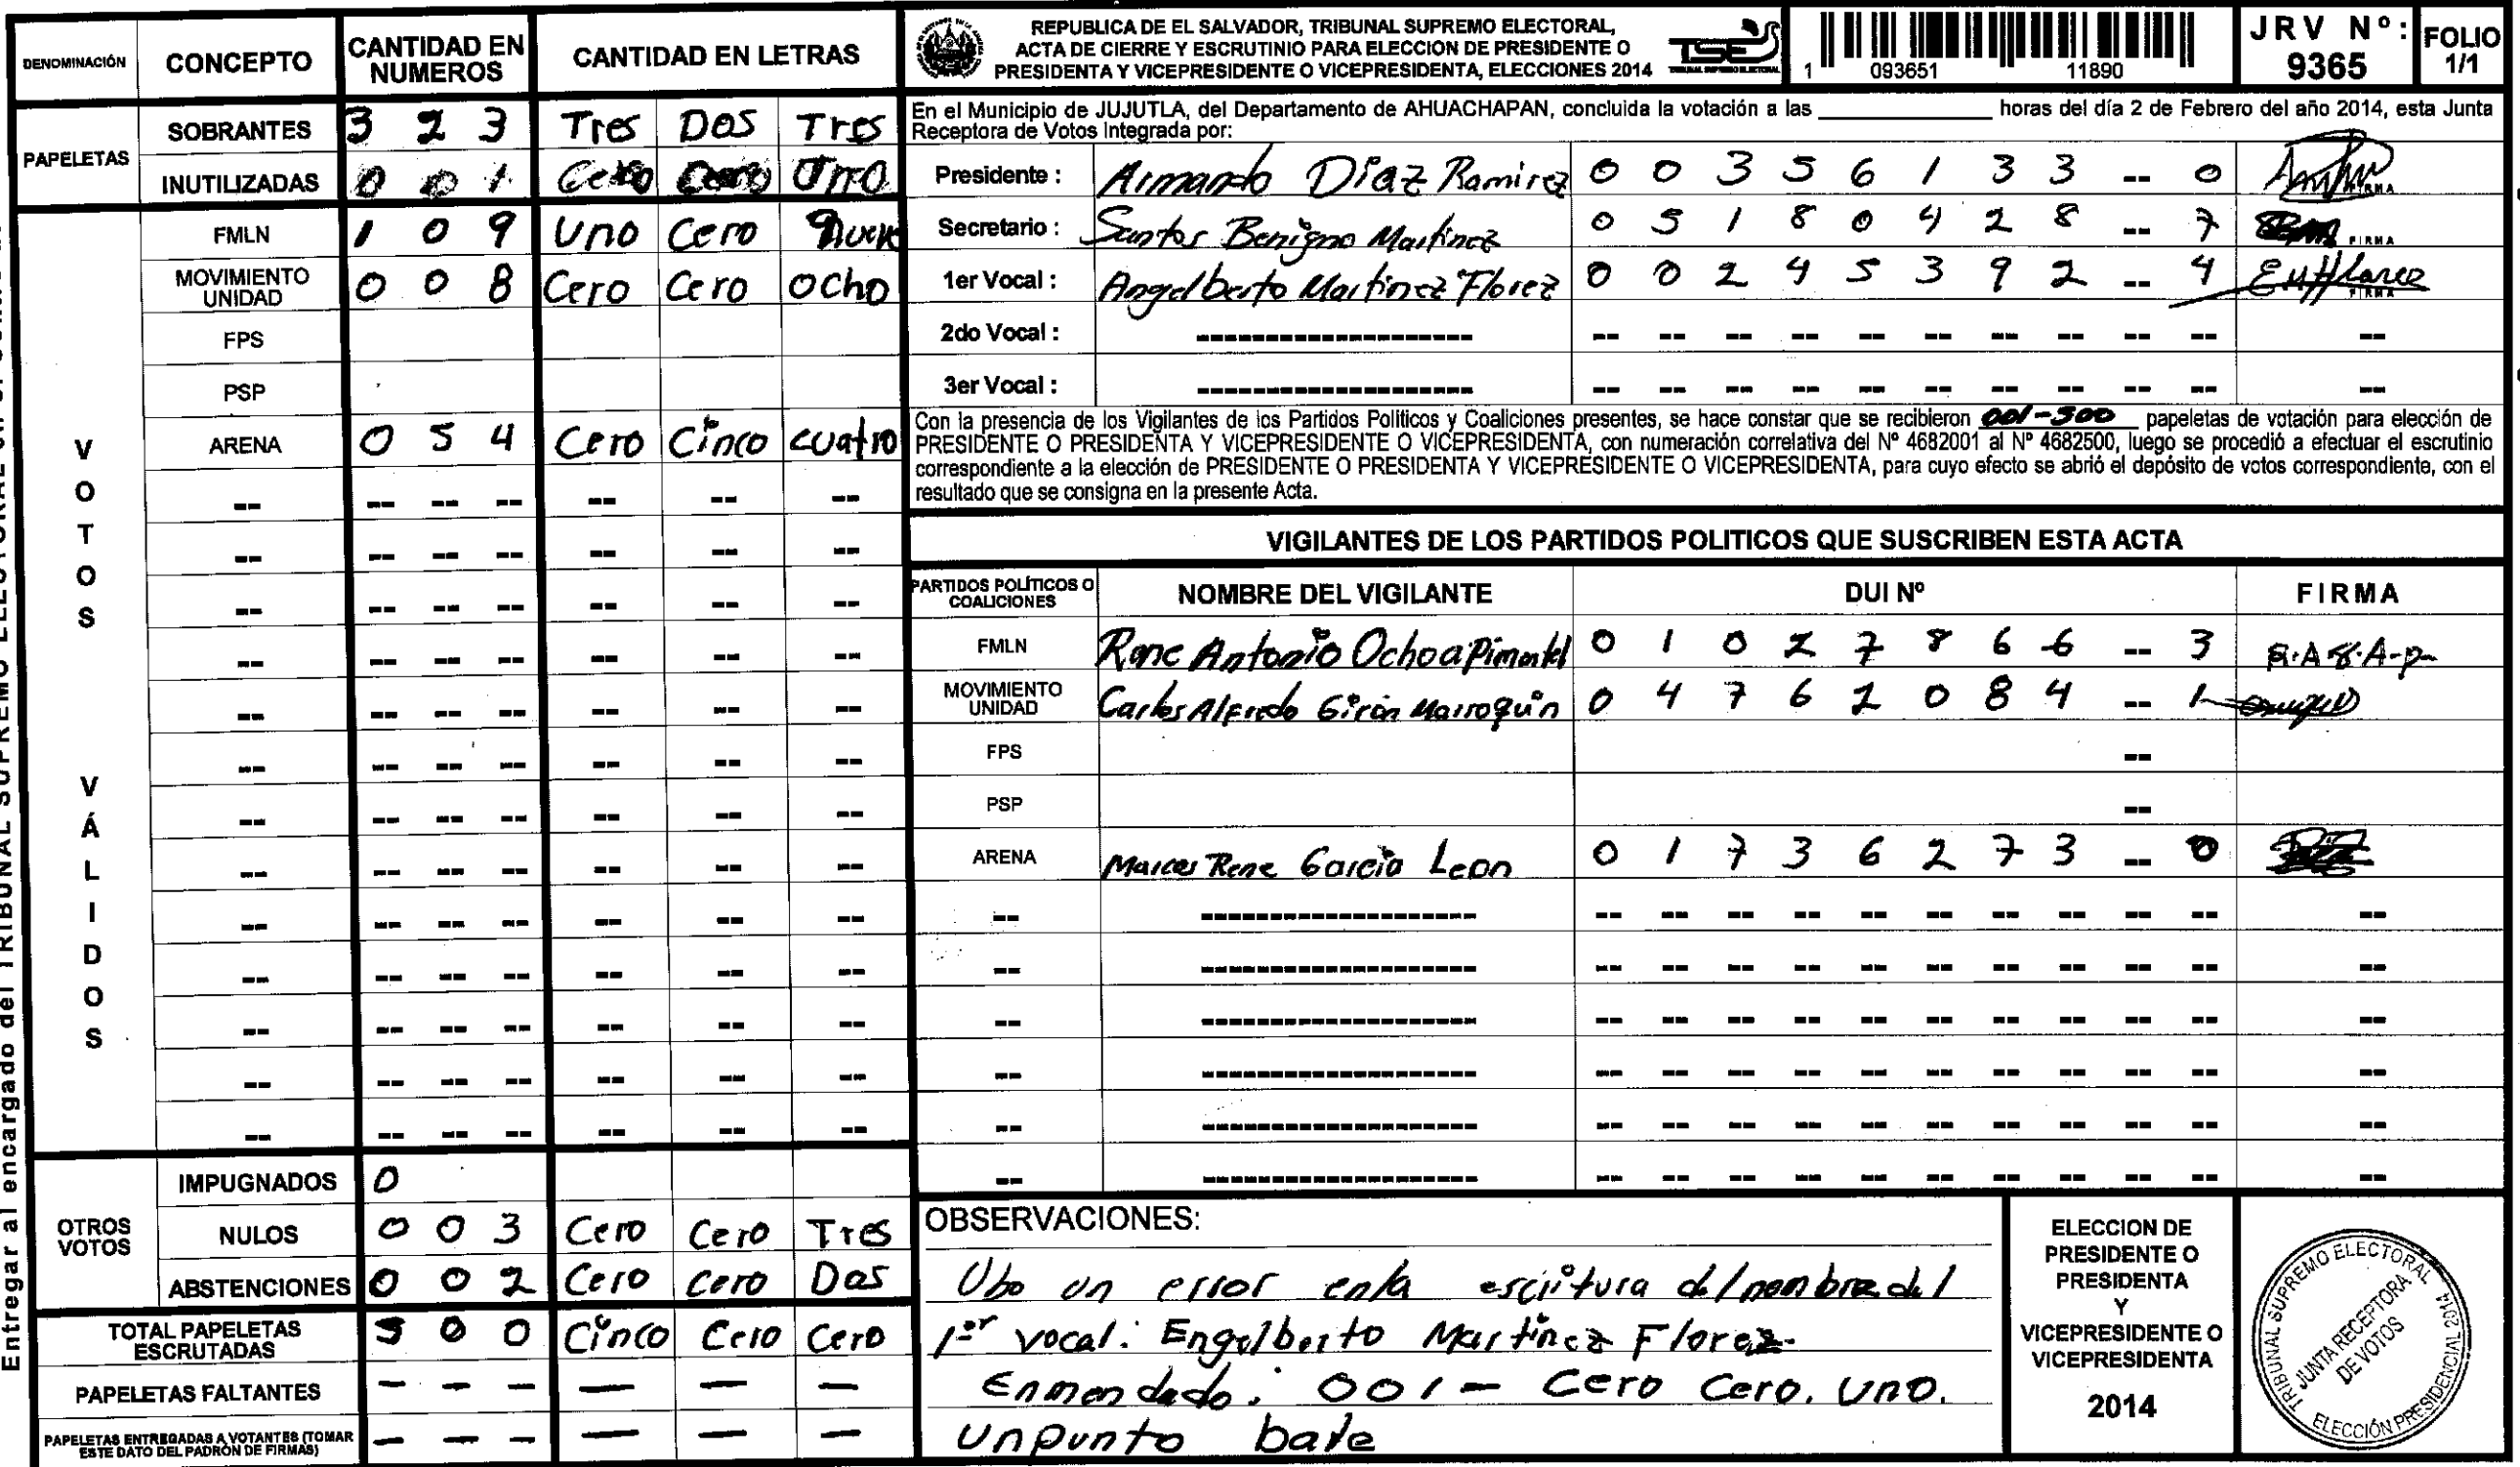 DENOMINACIÓN CONCEPTO CANTIDAD EN NUMEROS CANTIDAD EN LETRAS
PAPELETAS
SOBRANTES 3 2 3 Tres Dos Tres
INUTILIZADAS 0 0 1 Cero Cero Uno
VOTOS VÁLIDOS
FMLN 1 0 9 Uno Cero Nueve
MOVIMIENTO UNIDAD 0 0 8 Cero Cero Ocho
FPS
PSP
ARENA 0 5 4 Cero Cinco cuatro
-- -- -- -- -- -- --
-- -- -- -- -- -- --
-- -- -- -- -- -- --
-- -- -- -- -- -- --
-- -- -- -- -- -- --
-- -- -- -- -- -- --
-- -- -- -- -- -- --
-- -- -- -- -- -- --
-- -- -- -- -- -- --
-- -- -- -- -- -- --
-- -- -- -- -- -- --
-- -- -- -- -- -- --
-- -- -- -- -- -- --
OTROS VOTOS
IMPUGNADOS 0
NULOS 0 0 3 Cero Cero Tres
ABSTENCIONES 0 0 2 Cero Cero Dos
TOTAL PAPELETAS ESCRUTADAS 5 0 0 Cinco Cero Cero
PAPELETAS FALTANTES - - - - - -
PAPELETAS ENTREGADAS A VOTANTES (TOMAR ESTE DATO DEL PADRÓN DE FIRMAS) - - - - - -
Entregar al encargado del TRIBUNAL SUPREMO ELECTORAL
REPUBLICA DE EL SALVADOR, TRIBUNAL SUPREMO ELECTORAL,
ACTA DE CIERRE Y ESCRUTINIO PARA ELECCION DE PRESIDENTE O
PRESIDENTA Y VICEPRESIDENTE O VICEPRESIDENTA, ELECCIONES 2014
TSE
TRIBUNAL SUPREMO ELECTORAL
1 093651 11890
JRV Nº: 9365
FOLIO 1/1
En el Municipio de JUJUTLA, del Departamento de AHUACHAPAN, concluida la votación a las ____________ horas del día 2 de Febrero del año 2014, esta Junta
Receptora de Votos Integrada por:
Presidente : Armando Diaz Ramirez 0 0 3 5 6 1 3 3 -- 0 FIRMA
Secretario : Santos Benigno Martinez 0 5 1 8 0 4 2 8 -- 7 FIRMA
1er Vocal : Angelberto Martinez Florez 0 0 2 4 5 3 9 2 -- 4 FIRMA
2do Vocal : ------------------ -- -- -- -- -- -- -- -- -- -- --
3er Vocal : ------------------ -- -- -- -- -- -- -- -- -- -- --
Con la presencia de los Vigilantes de los Partidos Politicos y Coaliciones presentes, se hace constar que se recibieron 001-500 papeletas de votación para elección de
PRESIDENTE O PRESIDENTA Y VICEPRESIDENTE O VICEPRESIDENTA, con numeración correlativa del Nº 4682001 al Nº 4682500, luego se procedió a efectuar el escrutinio
correspondiente a la elección de PRESIDENTE O PRESIDENTA Y VICEPRESIDENTE O VICEPRESIDENTA, para cuyo efecto se abrió el depósito de votos correspondiente, con el
resultado que se consigna en la presente Acta.
VIGILANTES DE LOS PARTIDOS POLITICOS QUE SUSCRIBEN ESTA ACTA
PARTIDOS POLÍTICOS O COALICIONES NOMBRE DEL VIGILANTE DUI Nº FIRMA
FMLN Rene Antonio Ochoa Pimentel 0 1 0 2 7 8 6 6 -- 3 R.A.O.A-P
MOVIMIENTO UNIDAD Carlos Alfredo Girón Marroquín 0 4 7 6 2 0 8 4 -- 1
FPS --
PSP --
ARENA Marcos Rene Garcia Leon 0 1 7 3 6 2 7 3 -- 0
-- ------------------ -- -- -- -- -- -- -- -- -- -- --
-- ------------------ -- -- -- -- -- -- -- -- -- -- --
-- ------------------ -- -- -- -- -- -- -- -- -- -- --
-- ------------------ -- -- -- -- -- -- -- -- -- -- --
-- ------------------ -- -- -- -- -- -- -- -- -- -- --
-- ------------------ -- -- -- -- -- -- -- -- -- -- --
OBSERVACIONES:
Ubo un error en la escritura del nombre del
1er vocal: Engelberto Martinez Florez.
Enmendado: 001 - Cero Cero. Uno.
Un punto bale
ELECCION DE
PRESIDENTE O
PRESIDENTA
Y
VICEPRESIDENTE O
VICEPRESIDENTA
2014
TRIBUNAL SUPREMO ELECTORAL
JUNTA RECEPTORA
DE VOTOS
ELECCIÓN PRESIDENCIAL 2014